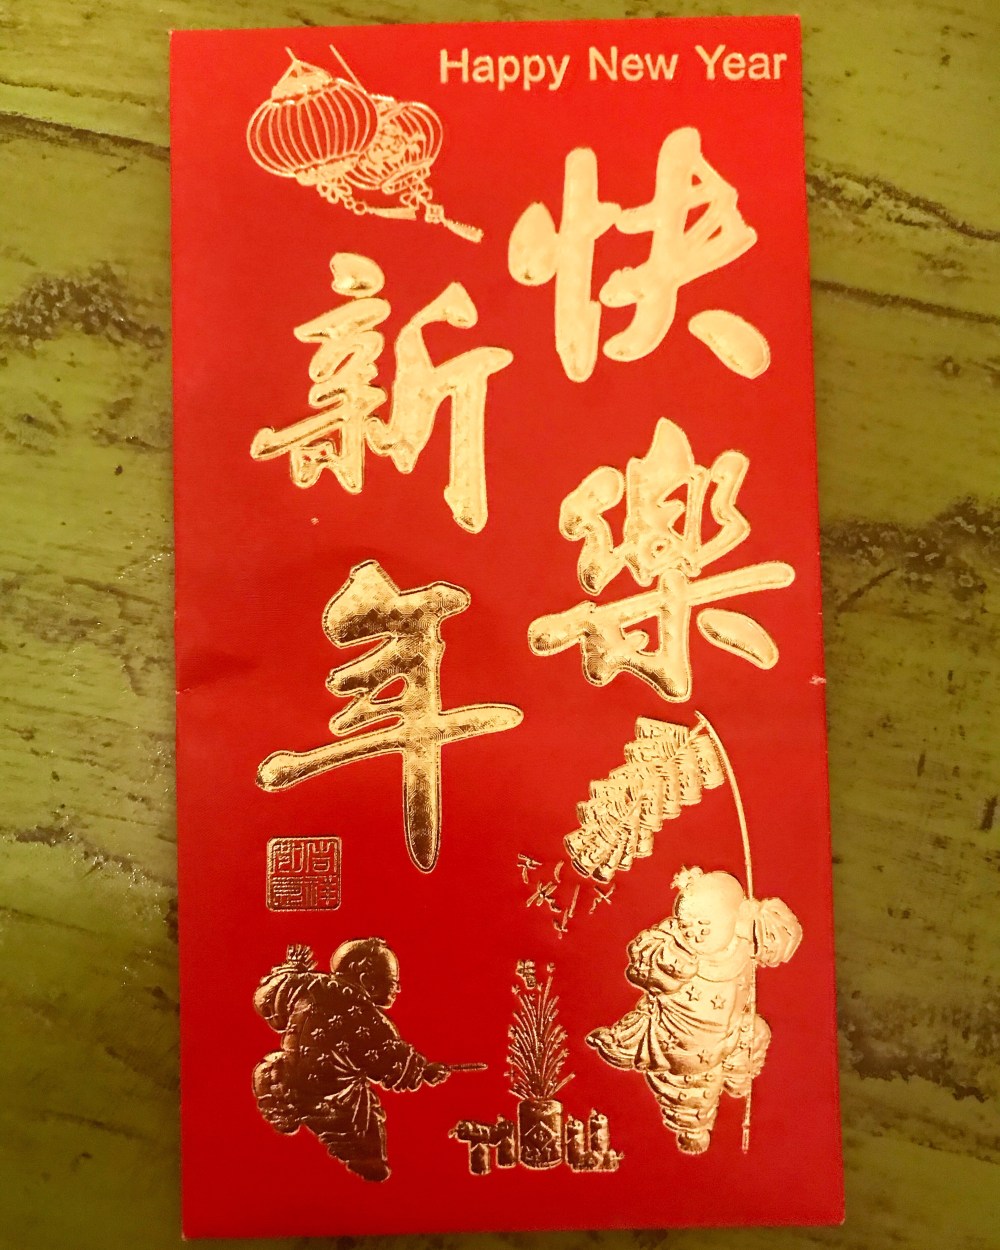 Happy New Year
新年
快樂
吉祥如意